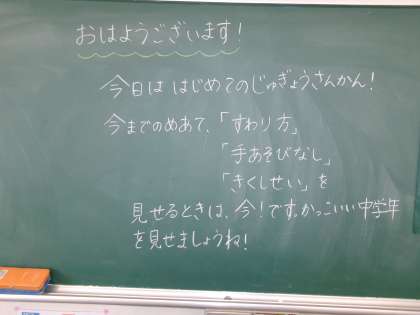 おはようございます!
今日は はじめてのじゅぎょうさんかん!
今までのめあて、「すわり方」
「手あそびなし」
「きくしせい」を
見せるときは、今!です。かっこいい中学年
を見せましょうね!